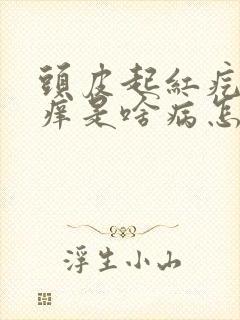 頭皮起紅疙
痒是啥病怎
浮生小山